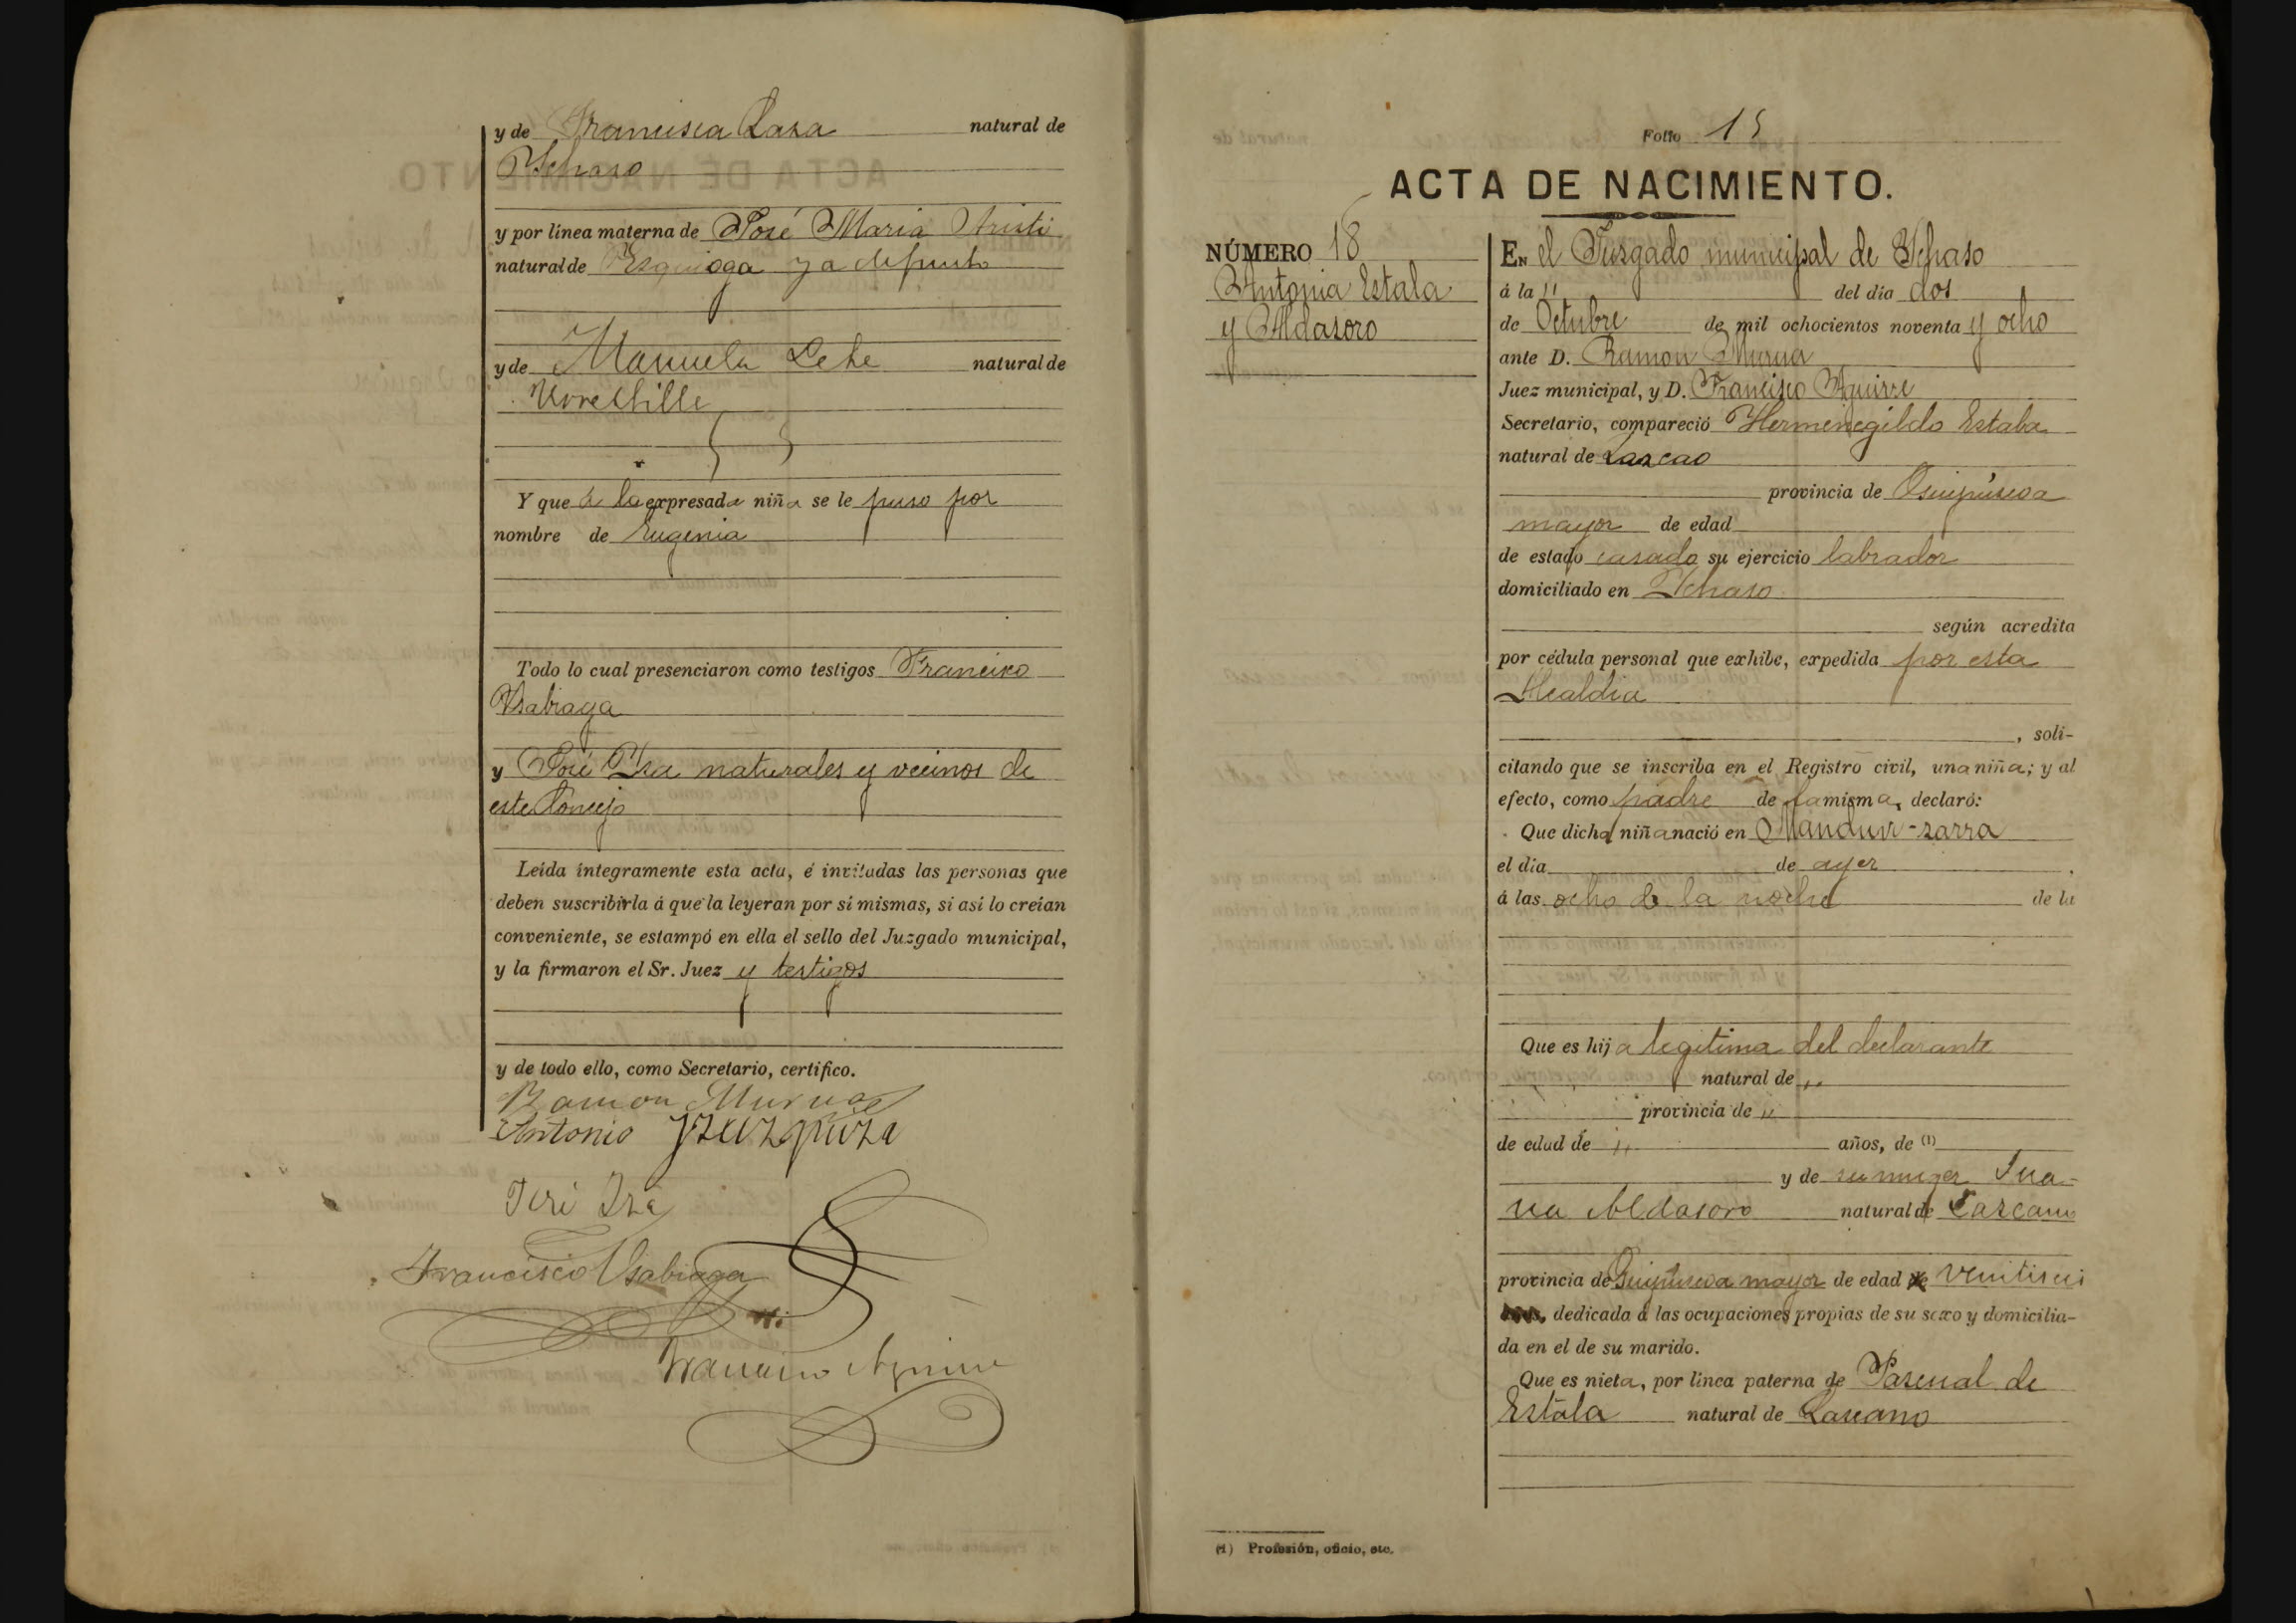 y de Francisca Lasa natural de
Ychaso
y por línea materna de José Maria Aristi
natural de Ezquioga ya difunto
y de Manuela Lete natural de
Urrestille
Y que a la expresada niña se le puso por
nombre de Eugenia
Todo lo cual presenciaron como testigos Francisco
Usabiaga
y José Yza naturales y vecinos de
este Concejo
Leída íntegramente esta acta, é invitadas las personas que
deben suscribirla á que la leyeran por sí mismas, si así lo creían
conveniente, se estampó en ella el sello del Juzgado municipal,
y la firmaron el Sr. Juez y testigos
y de todo ello, como Secretario, certifico.
Ramon Murua
Antonio
Francisco Usabiaga
Francisco Aguirre
Folio 15
ACTA DE NACIMIENTO.
NÚMERO 18
Antonia Estala
y Aldasoro
EN el Juzgado municipal de Ychaso
á la " del día dos
de Octubre de mil ochocientos noventa y ocho
ante D. Ramon Murua
Juez municipal, y D. Francisco Aguirre
Secretario, compareció Hermenegildo Estala
natural de Lazcao
provincia de Guipúscoa
mayor de edad
de estado casado su ejercicio labrador
domiciliado en Ychaso
según acredita
por cédula personal que exhibe, expedida por esta
Alcaldia
, soli-
citando que se inscriba en el Registro civil, una niña; y al
efecto, como padre de la misma, declaró:
Que dicha niña nació en Mandur-zarra
el día de ayer
á las ocho de la noche de la
Que es hija legitima del declarante
natural de "
provincia de "
de edad de " años, de (1)
y de su muger Jua-
na Aldasoro natural de Lazcano
provincia de Guipúscoa mayor de edad ventiseis
dedicada á las ocupaciones propias de su sexo y domicilia-
da en el de su marido.
Que es nieta, por línea paterna de Pascual de
Estala natural de Lascano
(1) Profesión, oficio, etc.